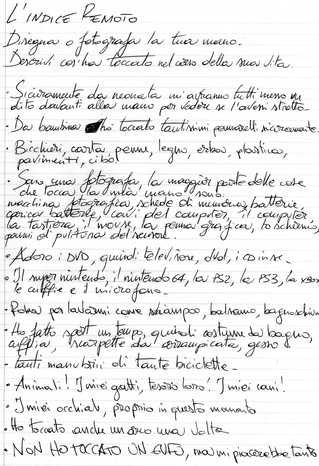 L'INDICE REMOTO
Disegna o fotografa la tua mano.
Descrivi cos'ha toccato nel corso della sua vita.
· Sicuramente da neonata mi avranno tutti messo un
dito davanti alla mano per vedere se l'avessi stretto.
· Da bambina ho toccato tantissimi pennarelli sicuramente.
· Bicchieri, carta penne, legno, erba, plastica,
pavimenti, cibo!
· Sono una fotografa, la maggior parte delle cose
che tocca la mia mano sono:
macchina fotografica, schede di memoria, batterie,
carica batterie, cavi del computer, il computer
la tastiera, il mouse, la penna grafica, lo schermo,
panni di pulitura del sensore.
· Adoro i DVD, quindi televisore, dvd,
· Il super nintendo, il nintendo 64, la PS2, la PS3, la xbox
le cuffie e il microfono.
· Roba per lavarmi come shampoo, balsamo, bagnoschiuma
· Ho fatto sport un tempo, quindi costume da bagno,
cuffia, scarpette da arrampicata, gesso
· tanti manubrii di tante biciclette.
· Animali! I miei gatti, tesoro loro! I miei cani!
· I miei occhiali, proprio in questo momento
· Ho toccato anche un una volta.
· NON HO TOCCATO UN GUFO, ma mi piacerebbe tanto